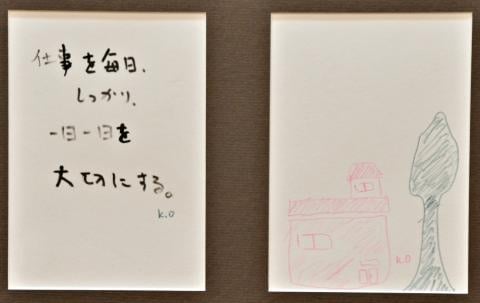 仕事を毎日、
しっかり、
一日一日を
大切にする。
K.O
K.O